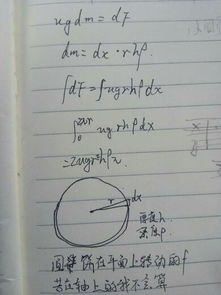 ugdm = dF
dm = dx · rhρ
∫dF = ∫ugrhρdx
∫₀²πr ugrhρdx
= 2ugr²hρπ
r dx
厚度h.
密度ρ.
圆 饼在平面上转动的f
若在轴上的我不会算